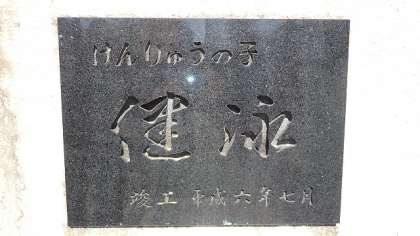 けんりゅうの子
健泳
竣工 平成六年七月